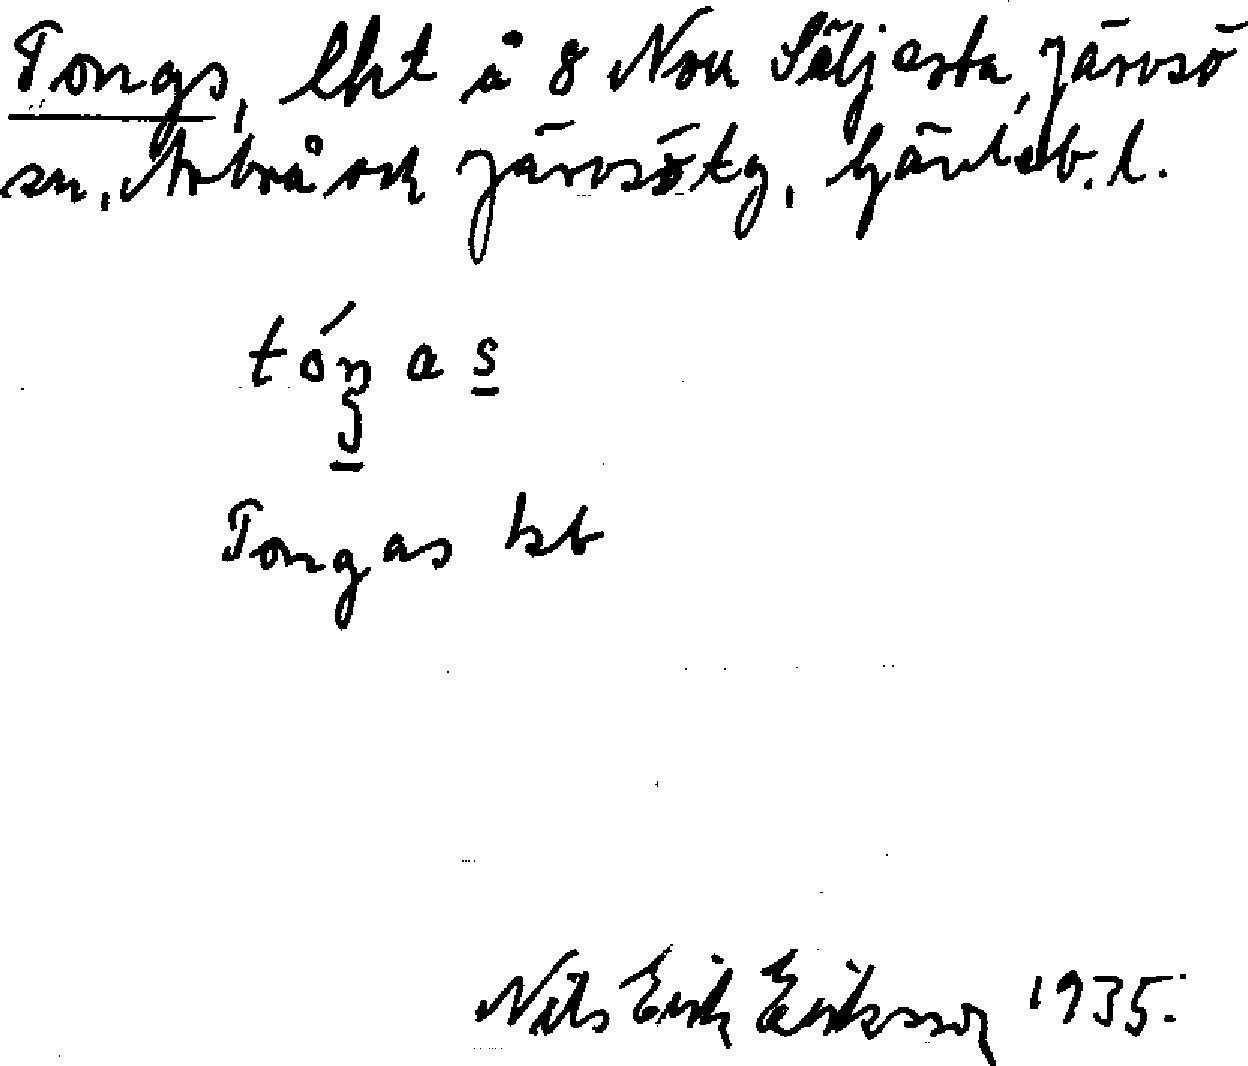 Tongs, lht å 8 Norr Säljesta, Järvsö
sn, Arbrå och Järvsö tg, Gävleb. l.
tóŋas
Tongas kb
Nils Erik Eriksson 1935.